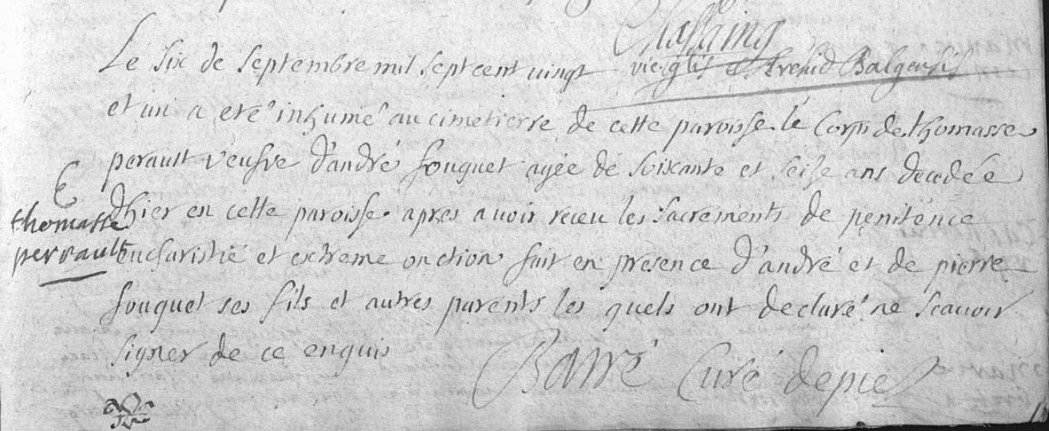 Chassaing
Le six de septembre mil sept cent vingt
et un a eté inhumé au cimetierre de cette paroisse le Corps de thomasse
perault veufve d'andré fouquet agée de soixante et seise ans decedée
d'hier en cette paroisse apres avoir receu les sacrements de penitence
eucharistié et extreme onction fait en presence d'andré et de pierre
fouquet ses fils et autres parents les quels ont declaré ne scavoir
signer de ce enquis
Barré Curé depie
thomasse
perrault